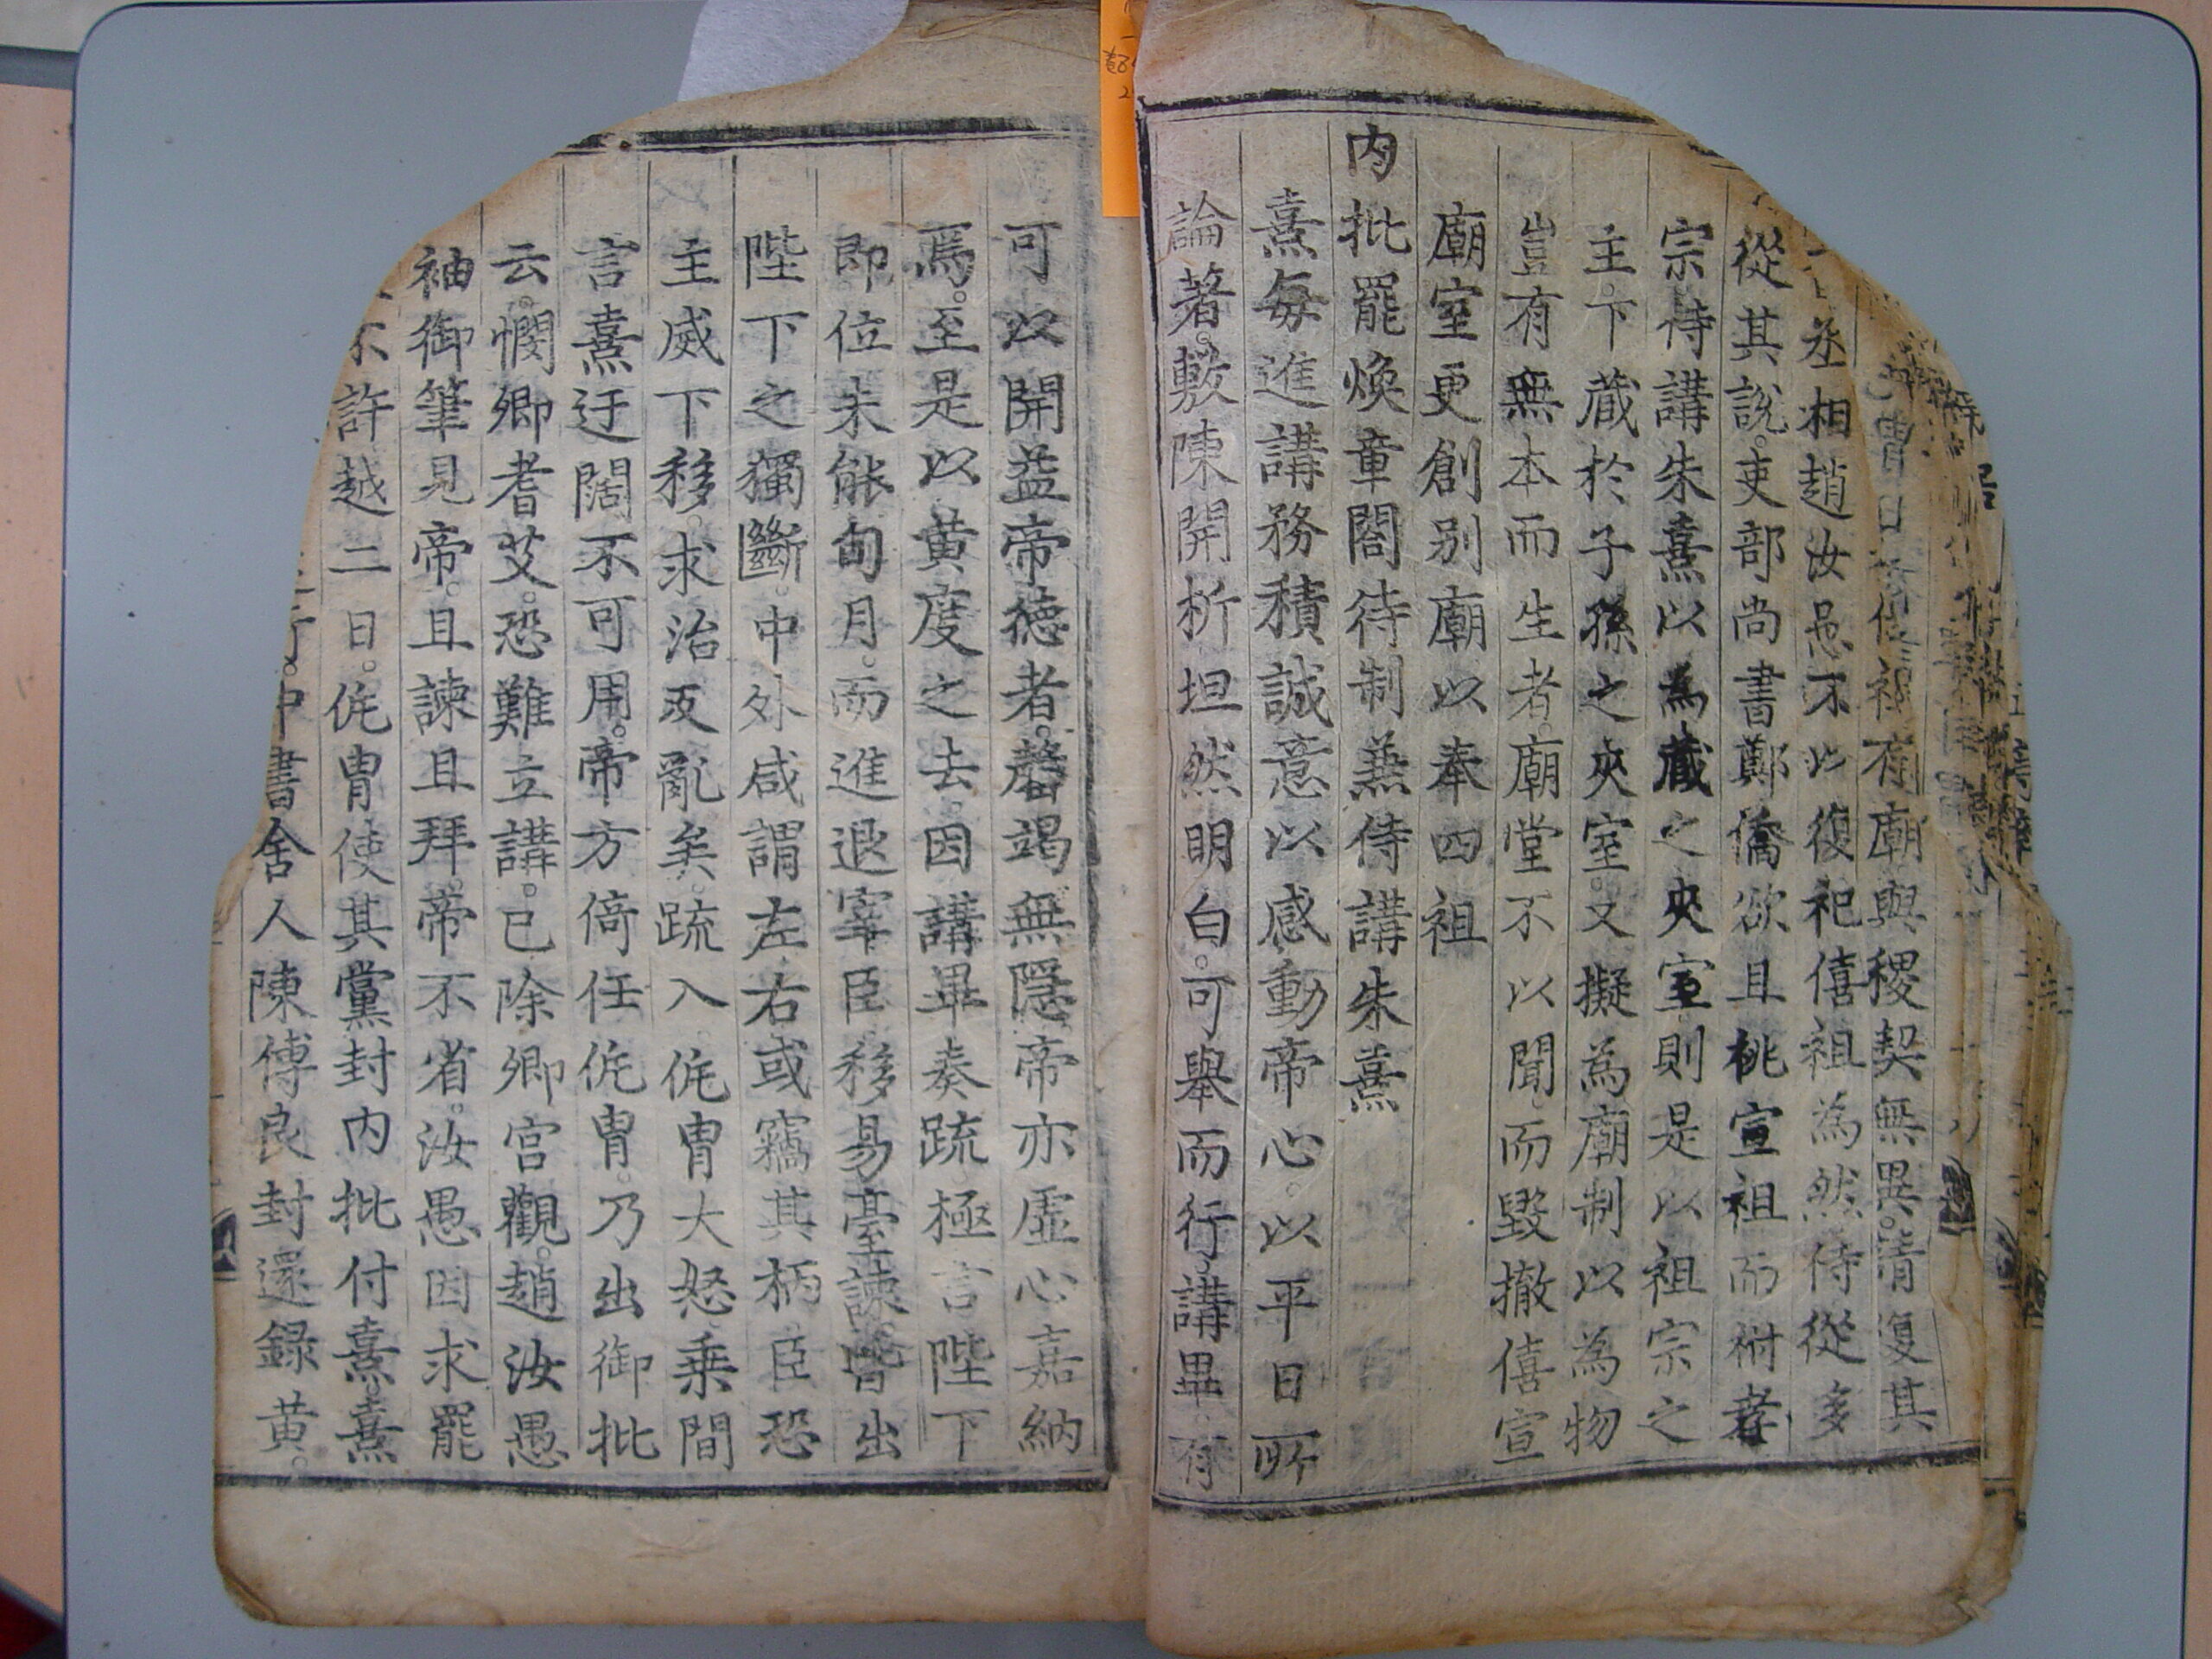 有廟與稷契無異請復其
丞相趙汝愚不以復祀僖祖為然侍從多
從其說吏部尚書鄭僑欲且祧宣祖而祔孝
宗侍講朱熹以為藏之夾室則是以祖宗之
主下藏於子孫之夾室又擬為廟制以為物
豈有無本而生者廟堂不以聞而毀撤僖宣
廟室更創别廟以奉四祖
内批罷煥章閣待制兼侍講朱熹
熹每進講務積誠意以感動帝心以平日所
論著敷陳開析坦然明白可舉而行講畢有
可以開益帝德者罄竭無隱帝亦虛心嘉納
焉至是以黃度之去因講畢奏疏極言陛下
即位未能旬月而進退宰臣移易臺諫皆出
陛下之獨斷中外咸謂左右或竊其柄臣恐
主威下移求治反亂矣疏入侂胄大怒乘間
言熹迂闊不可用帝方倚任侂胄乃出御批
云憫卿耆艾恐難立講已除卿宮觀趙汝愚
袖御筆見帝且諫且拜帝不省汝愚因求罷
不許越二日侂胄使其黨封内批付熹熹
行中書舍人陳傅良封還錄黃